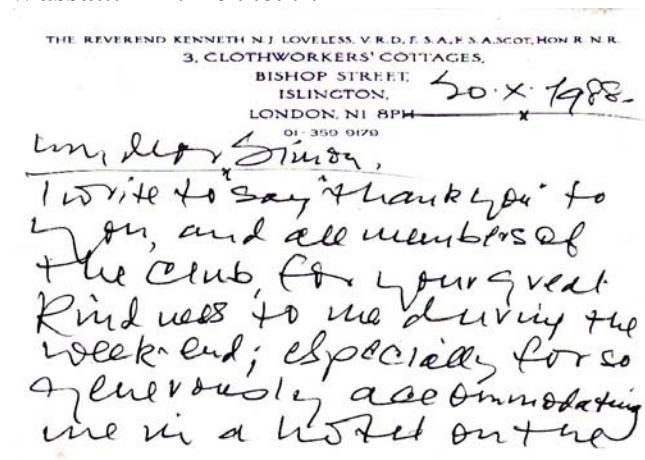 THE REVEREND KENNETH N.J. LOVELESS, V.R.D., F.S.A., F.S.A.SCOT, HON R.N.R.
3, CLOTHWORKERS' COTTAGES,
BISHOP STREET,
ISLINGTON,
LONDON, N1 8PH
20.X.1988.
01-359 9179
My dear Simon,
I write to say "thank you" to
you, and all members of
the club, for your great
kindness to me during the
week-end; especially for so
generously accommodating
me in a hotel on the